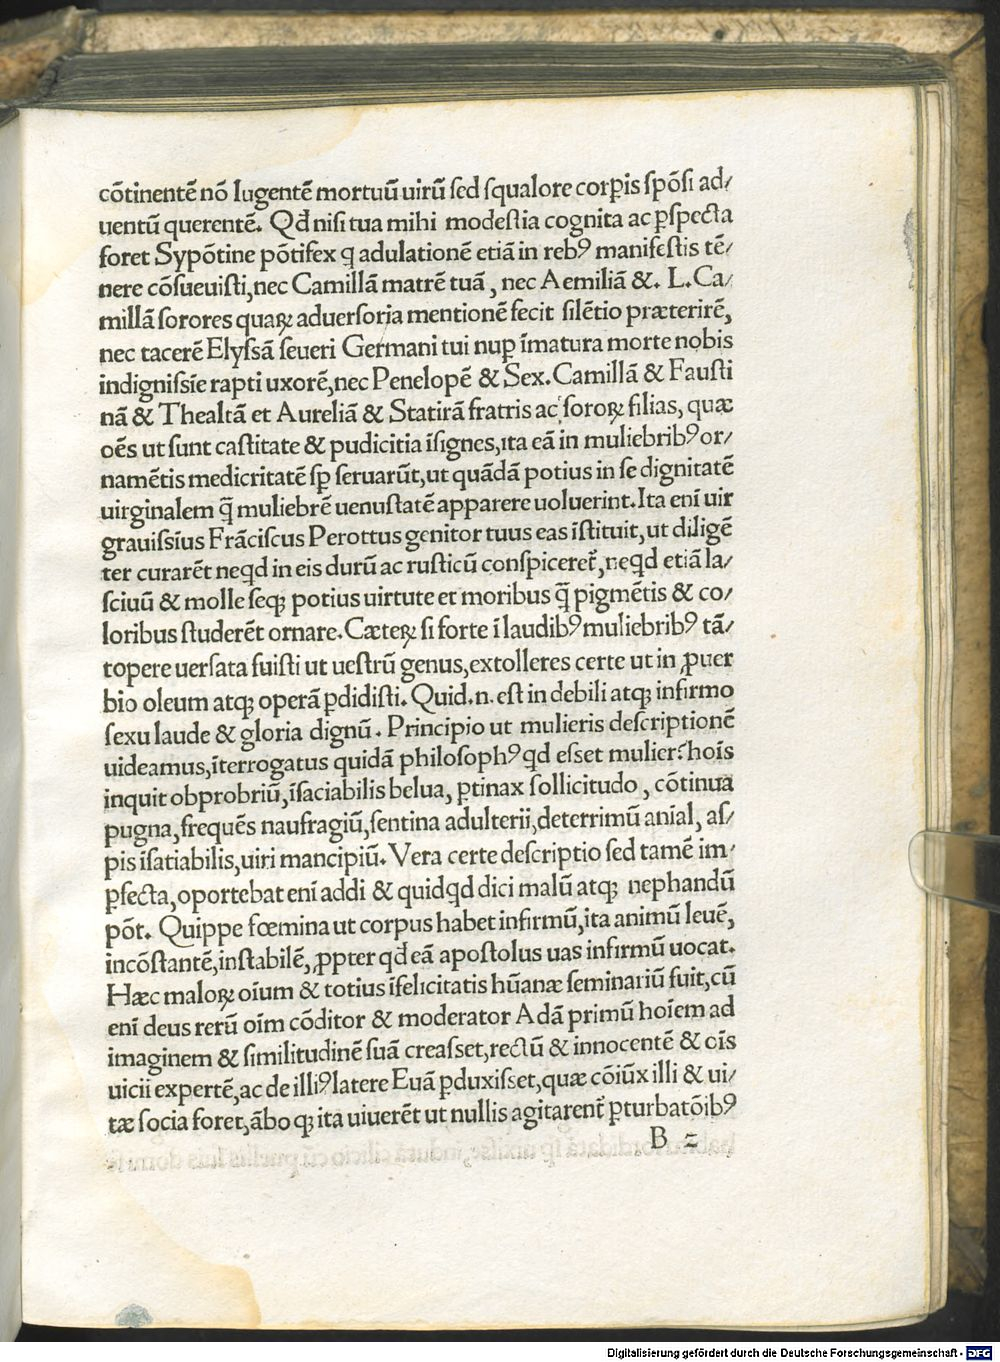 cōtinentē nō lugentē mortuū uirū sed squalore corꝑis spōsi ad/
uentū querentē. Qđ nisi tua mihi modestia cognita ac ꝑspecta
foret Sypōtine pōtifex q̨ adulationē etiā in rebꝰ manifestis tē/
nere cōsueuisti, nec Camillā matrē tuā, nec Aemiliā &. L. Ca/
millā sorores quaꝝ aduersoria mentionē fecit silētio præterirē,
nec tacerē Elyssā seueri Germani tui nuꝑ īmatura morte nobis
indignissīe rapti uxorē, nec Penelopē & Sex. Camillā & Fausti
nā & Thealtā et Aureliā & Statirā fratris ac soroꝝ filias, quæ
oēs ut sunt castitate & pudicitia īsignes, ita eā in muliebribꝰ or/
namētis medicritatē sꝑ seruarūt, ut quādā potius in se dignitatē
uirginalem q̄ muliebrē uenustatē apparere uoluerint. Ita enī uir
grauissīus Frāciscus Perottus genitor tuus eas īstituit, ut diligē
ter curarēt neqd in eis durū ac rusticū conspiceret̄, neqd etiā la/
sciuū & molle seqꝫ potius uirtute et moribus q̄ pigmētis & co/
loribus studerēt ornare. Cæteꝝ si forte ī laudibꝰ muliebribꝰ tā/
topere uersata fuisti ut uestrū genus, extolleres certe ut in ꝓuer
bio oleum atqꝫ operā ꝑdidisti. Quid. n. est in debili atqꝫ infirmo
sexu laude & gloria dignū. Principio ut mulieris descriptionē
uideamus, īterrogatus quidā philosophꝰ qd esset mulier? hoīs
inquit obprobriū, īsaciabilis belua, ꝑtinax sollicitudo, cōtinua
pugna, frequēs naufragiū, sentina adulterii, deterrimū anīal, as/
pis īsatiabilis, uiri mancipiū. Vera certe descriptio sed tamē im/
ꝑfecta, oportebat enī addi & quidqd dici malū atqꝫ nephandū
pōt. Quippe fœmina ut corpus habet infirmū, ita animū leuē,
incōstantē, instabilē, ꝓpter qđ eā apostolus uas infirmū uocat.
Hæc maloꝝ oīum & totius īfelicitatis hūanæ seminariū fuit, cū
enī deus rerū oīm cōditor & moderator Adā primū hoīem ad
imaginem & similitudinē suā creasset, rectū & innocentē & oīs
uicii expertē, ac de illiꝰ latere Euā ꝑduxisset, quæ cōiūx illi & ui/
tæ socia foret, ābo qꝫ ita uiuerēt ut nullis agitarent̄ ꝑturbatōibꝰ
B 2
Digitalisierung gefördert durch die Deutsche Forschungsgemeinschaft - DFG